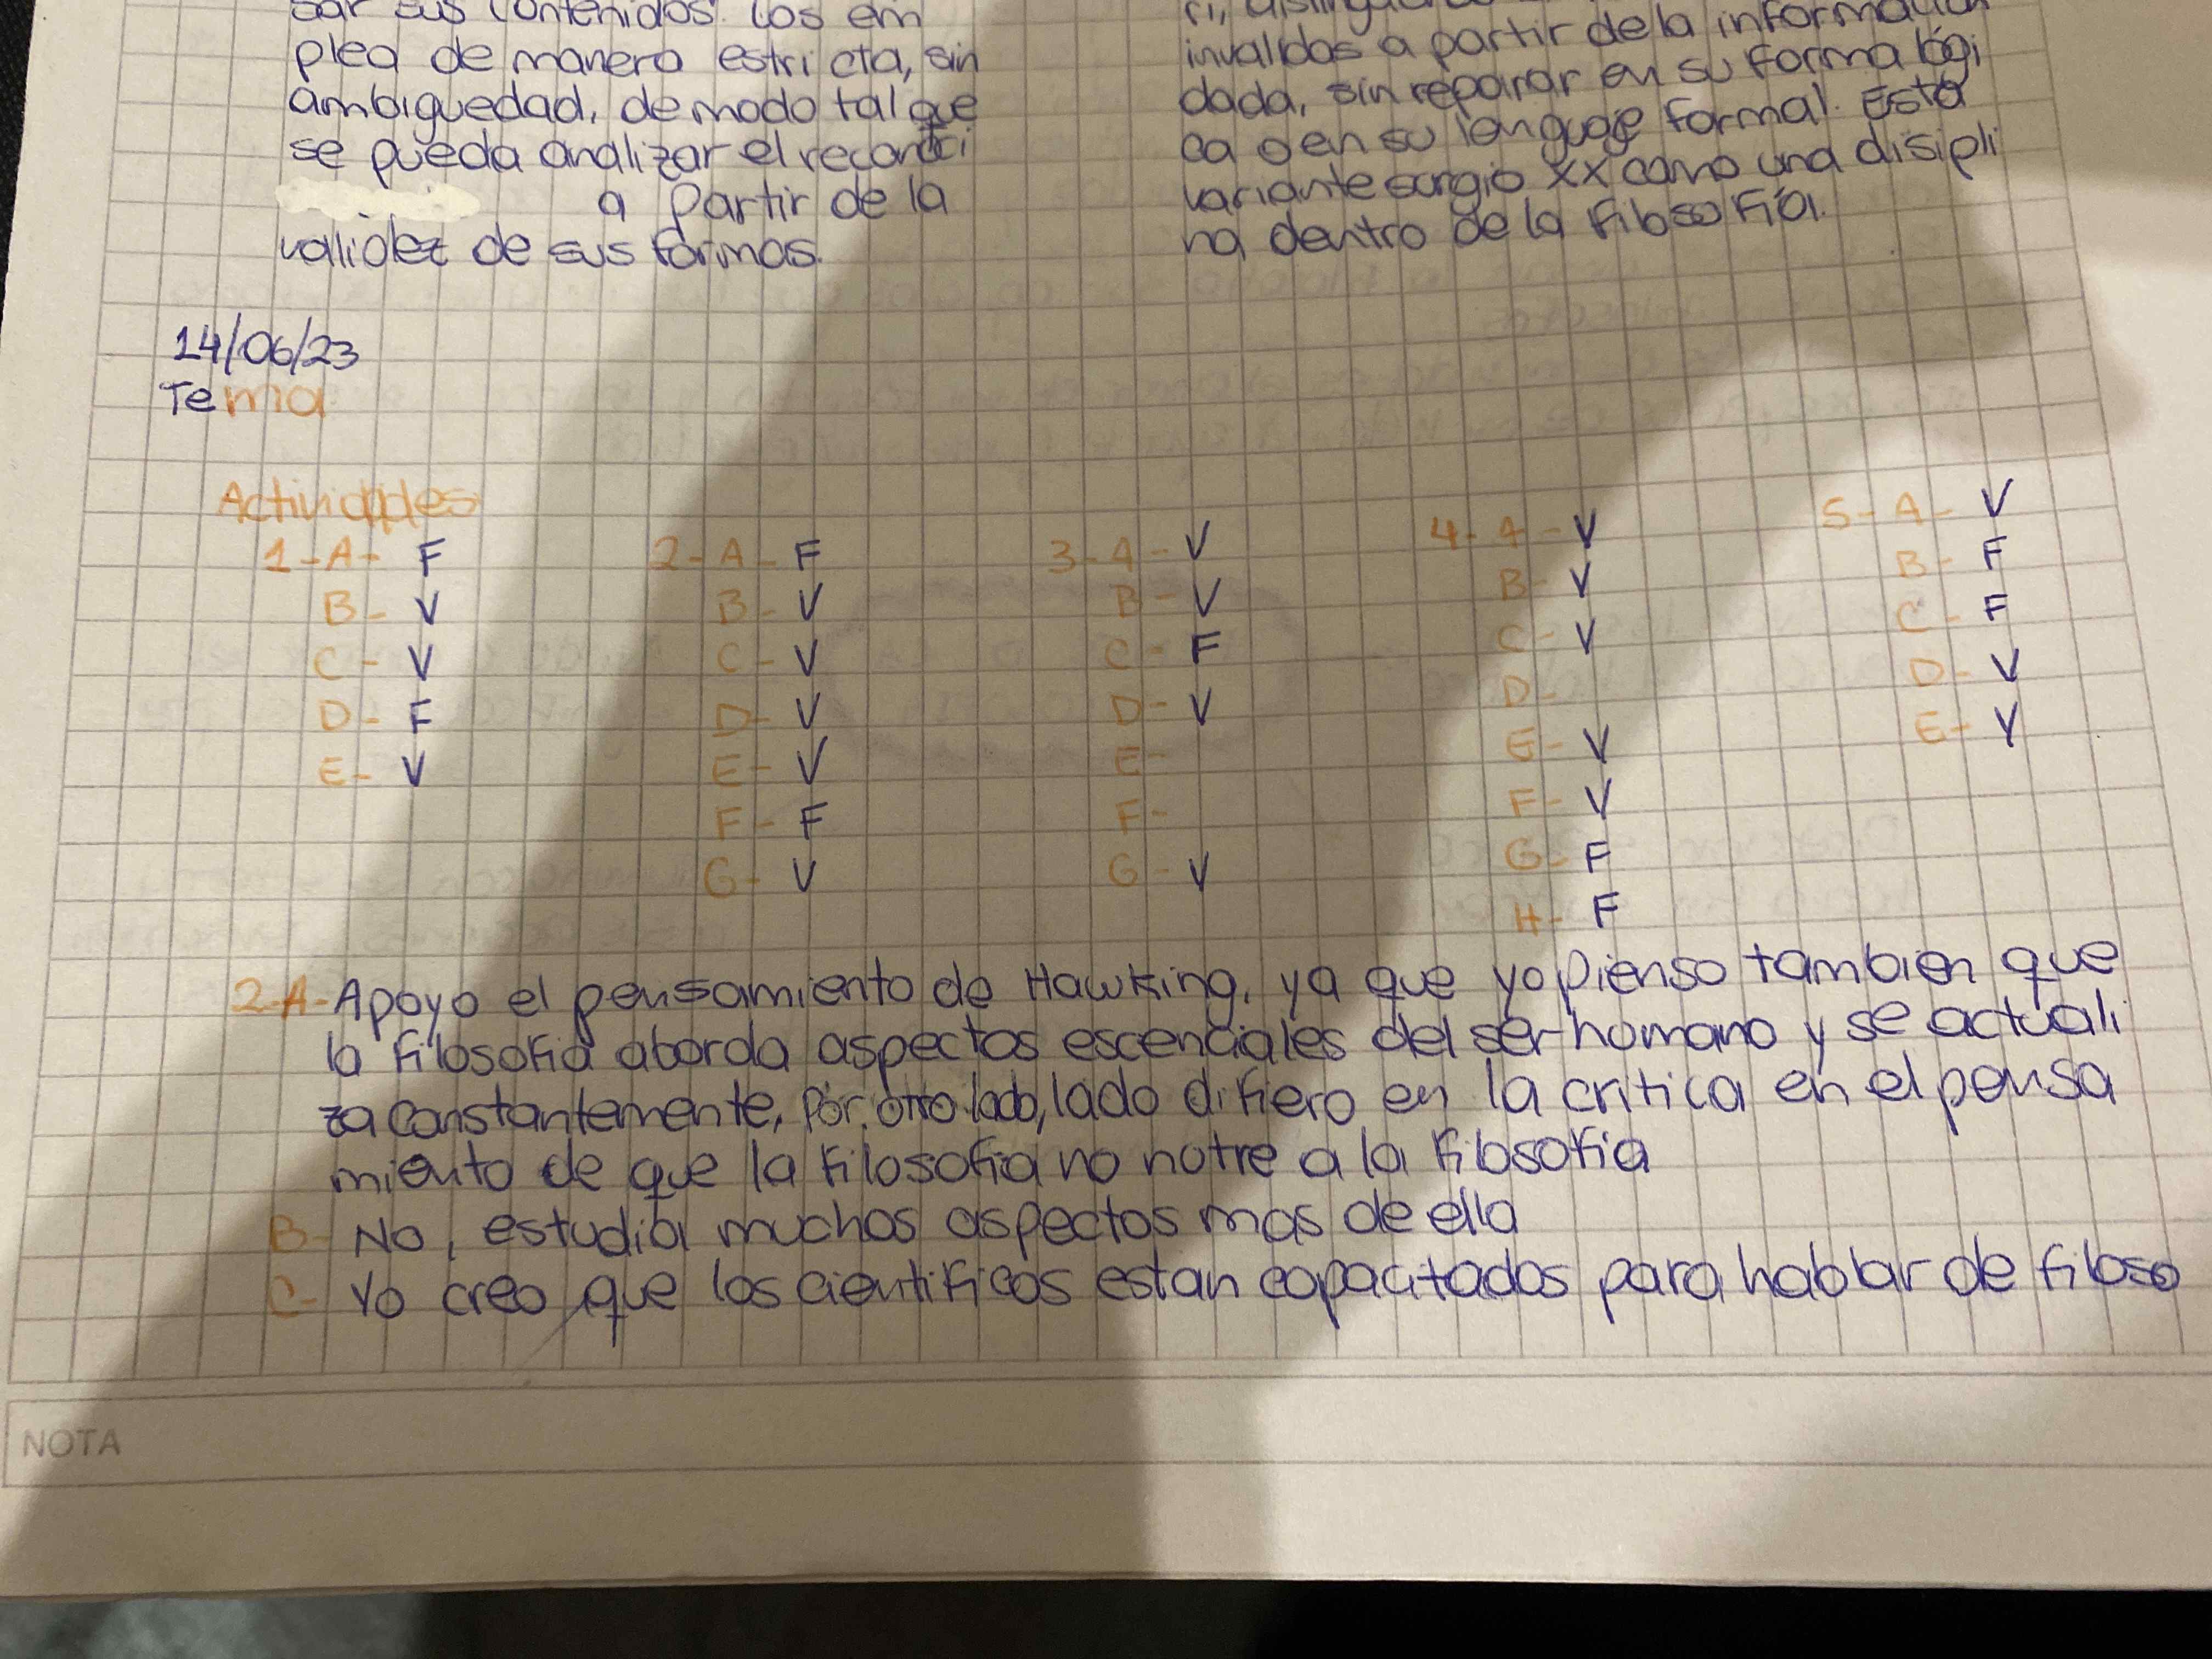 sar sus contenidos. Los em
plea de manera estricta, sin
ambiguedad, de modo tal que
se pueda analizar el
a partir de la
validez de sus formas.
invalidos a partir de la información
dada, sin reparar en su forma lógi
ca o en su lenguaje formal. Esta
variante surgio XX como una disipli
na dentro de la filosofía.
14/06/23
Tema
Actividades
1-A- F
B- V
C- V
D- F
E- V
2-A- F
B- V
C- V
D- V
E- V
F- F
G- V
3-A- V
B- V
C- F
D- V
E-
F-
G- V
4-A- V
B- V
C- V
D-
E- V
F- V
G- F
H- F
5-A- V
B- F
C- F
D- V
E- V
2-A- Apoyo el pensamiento de Hawking, ya que yo pienso tambien que
la filosofia aborda aspectos escenciales del ser humano y se actuali
za constantemente, Por otro lado, lado difiero en la critica en el pensa
miento de que la filosofia no nutre a la filosofia
B- No, estudia muchos aspectos mas de ella
C- Yo creo que los cientificos estan capacitados para hablar de filoso
NOTA